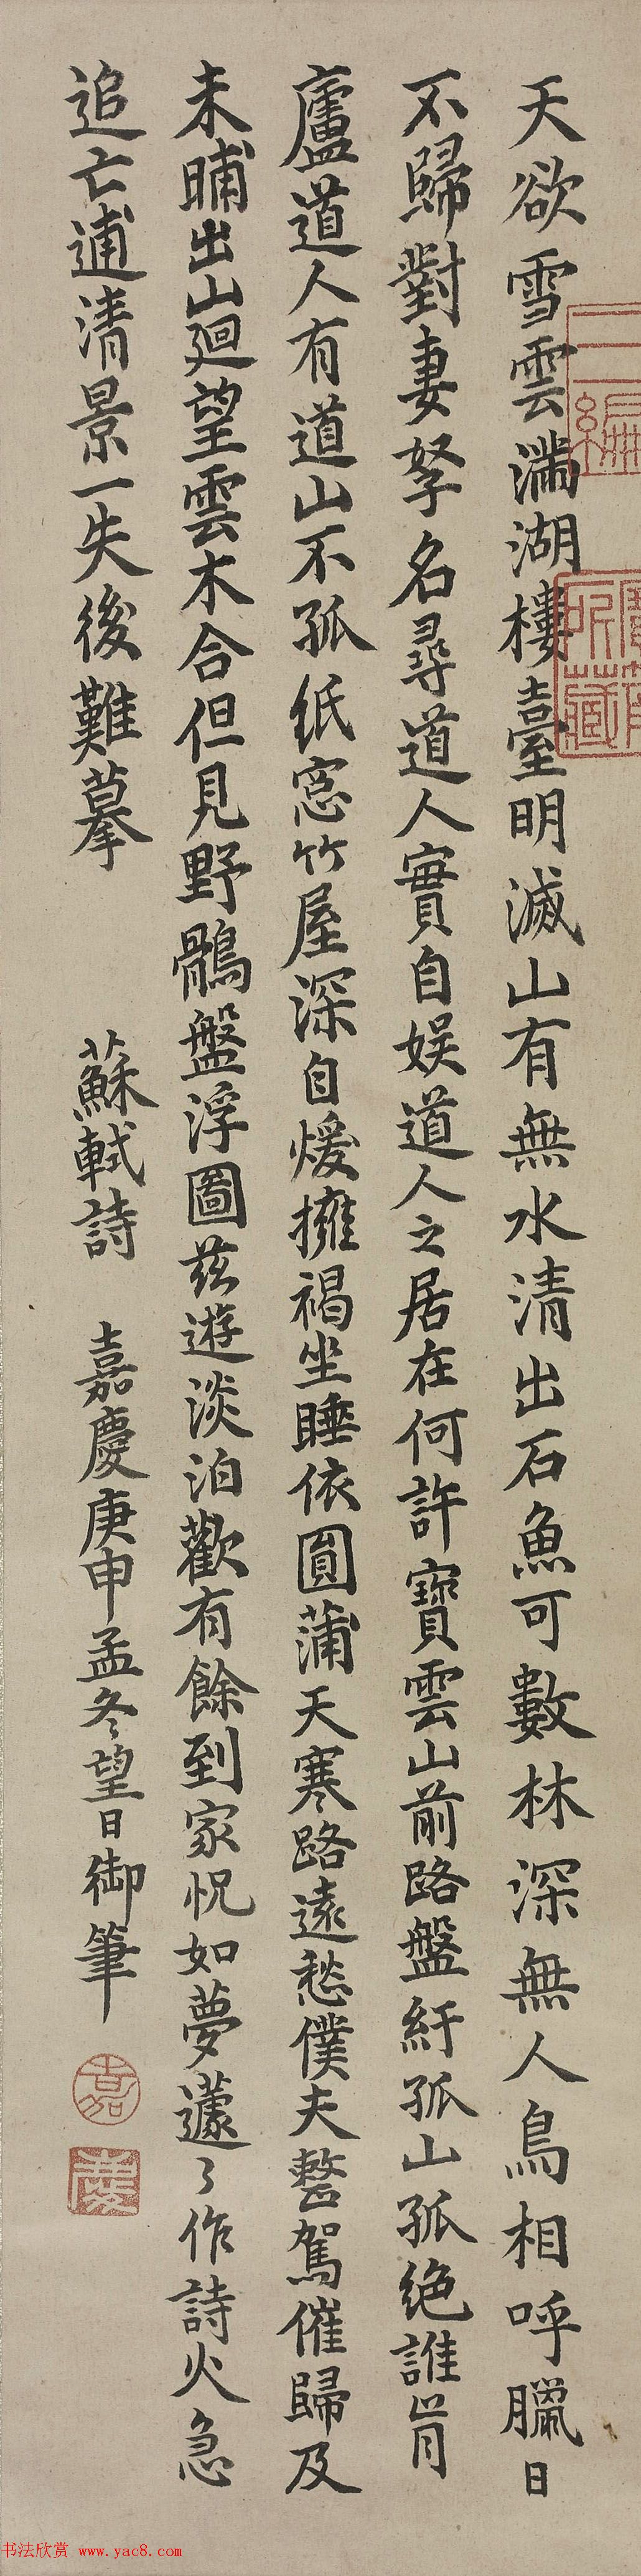 天欲雪雲滿湖樓臺明滅山有無水清出石魚可數林深無人鳥相呼臘日
不歸對妻孥名尋道人實自娛道人之居在何許寶雲山前路盤紆孤山孤絕誰肯
廬道人有道山不孤紙窓竹屋深自煖擁褐坐睡依圓蒲天寒路遠愁僕夫整駕催歸及
未晡出山迴望雲木合但見野鶻盤浮圖茲遊淡泊歡有餘到家怳如夢蘧〻作詩火急
追亡逋清景一失後難摹 蘇軾詩 嘉慶庚申孟冬望日御筆
嘉
慶
三編
所藏
书法欣赏 www.yac8.com